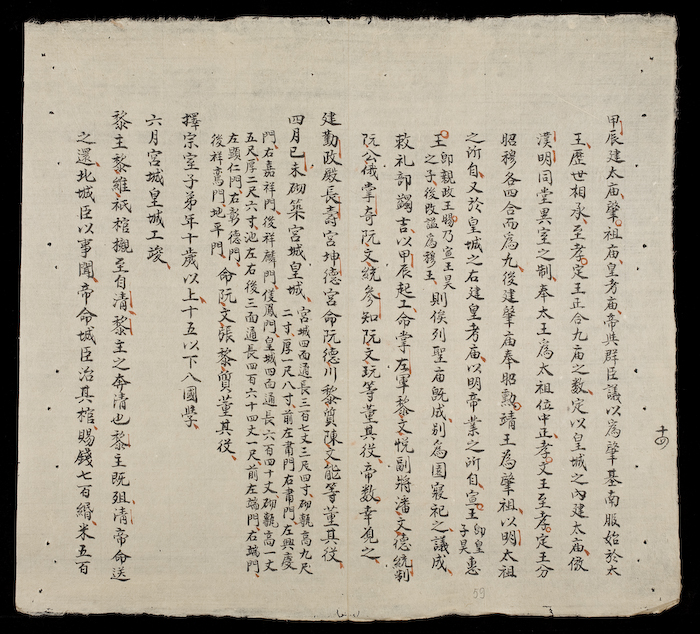 甲辰建太庙肇祖庙皇考庙帝與群臣議以為肇基南服始於太
王歷世相承至孝定王正合九庙之數定以皇城之內建太庙倣
漢明同堂異室之制奉太王為太祖位中正孝文王至孝定王分
昭穆各四合而為九後建肇庙奉昭勲靖王為肇祖以明太祖
之所自又於皇城之右建皇考庙以明帝業之所自宣王 即皇子昊 惠
王 即親政王暘乃宣王昊之子後改謚為穆王 則俟列聖庙既成別為園寢祀之議成
敕礼部蠲吉以甲辰起工命掌左軍黎文悅副將潘文德統制
阮公俄掌奇阮文統參知阮文玩等董其役帝数幸視之
建勤政殿長壽宮坤德宮命阮德川黎質陳文能等董其役
四月己未砌築宮城皇城 宮城四面通長三百七丈三尺四寸砌甎高九尺
二寸厚一尺八寸前左肅門右肅門左興慶
門右嘉祥門後祥麟門儀鳳門皇城四面通長六百四十丈砌甎高一丈
五尺厚二尺六寸池左右後三面通長四百六十四丈一尺前左端門右端門
左顕仁門右彰德門
後祥鸞門地平門 命阮文張黎質董其役
擇宗室子弟年十歲以上十五以下入國學
六月宮城皇城工竣
黎主黎維祇棺櫬至自清黎主之奔清也黎主既殂清帝命送
之還北城臣以事聞帝命城臣治其棺賜錢七百緡米五百
十四
59